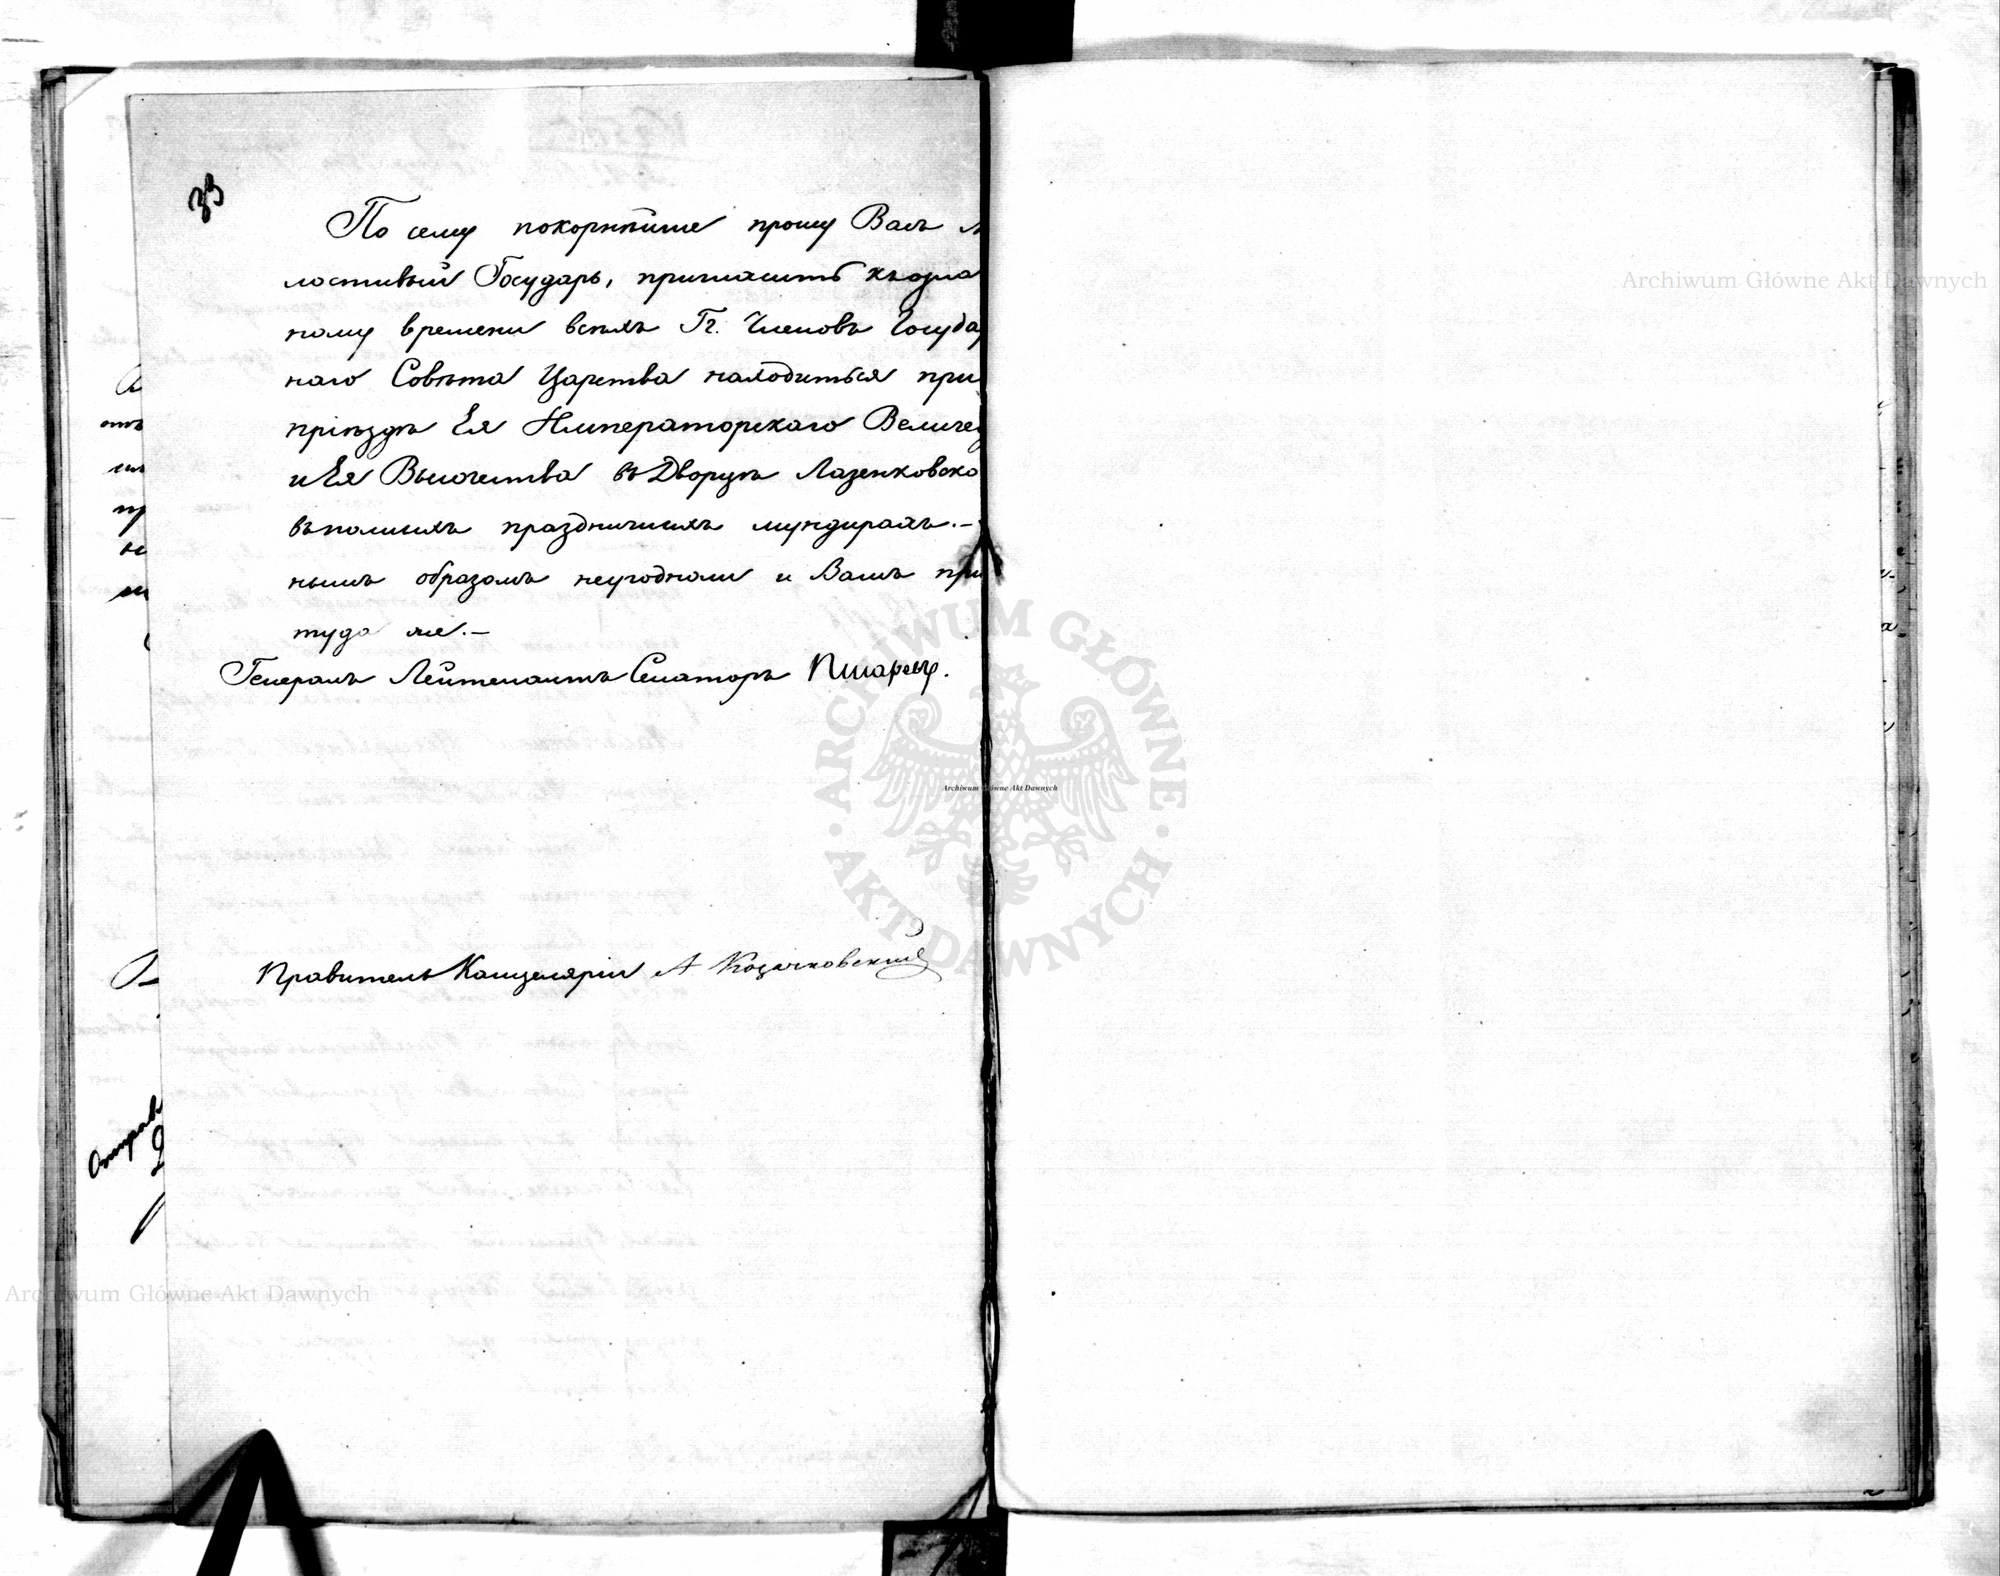 33
По сему покорнѣйше прошу Васъ м
лостивый Государь, пригласить къ озна
ному времени всѣхъ Гг. Членовъ Госуда
наго Совѣта Царства находиться при
пріѣздѣ Ея Императорскаго Величес
и Ея Высочества въ Дворцѣ Лазенковско
въ полныхъ праздничныхъ мундирахъ.—
нымъ образомъ неугодноли и Вамъ при
туда же.—
Генералъ Лейтенантъ Сенаторъ Писаревъ.
Правитель Канцеляріи А Козачковскій
Archiwum Główne Akt Dawnych
Archiwum Główne Akt Dawnych
Archiwum Główne Akt Dawnych
ARCHIWUM GŁÓWNE AKT DAWNYCH